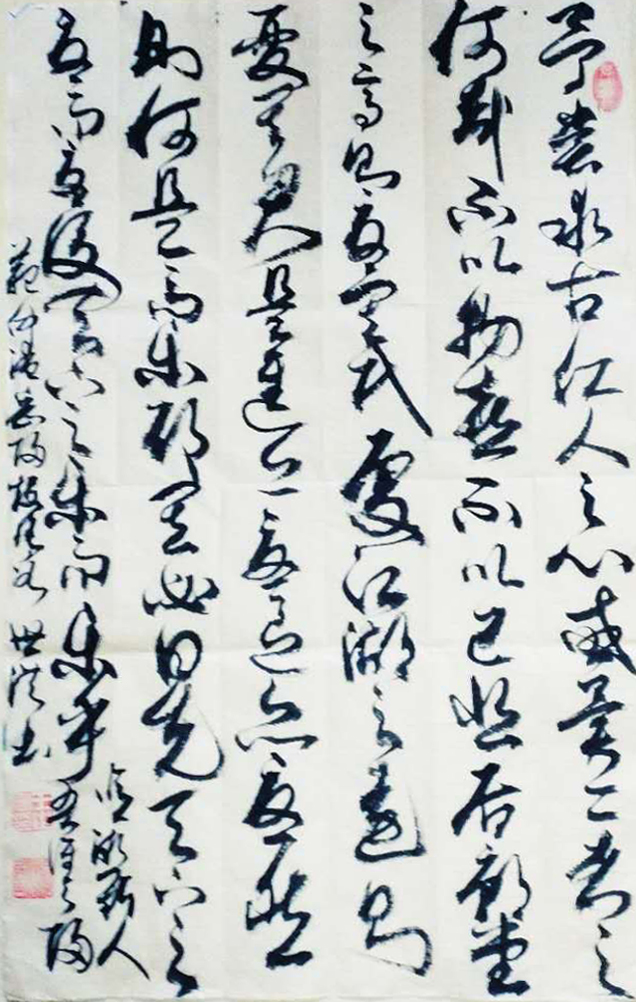 予嘗求古仁人之心或異二者之
何哉不以物喜不以己悲居廟堂
之高則憂其民處江湖之遠則
憂其君是進亦憂退亦憂然
則何是而樂耶其必曰先天下之
憂而憂後天下之樂而樂乎
噫微斯人
吾谁与歸
范仲淹岳陽樓記 世 书